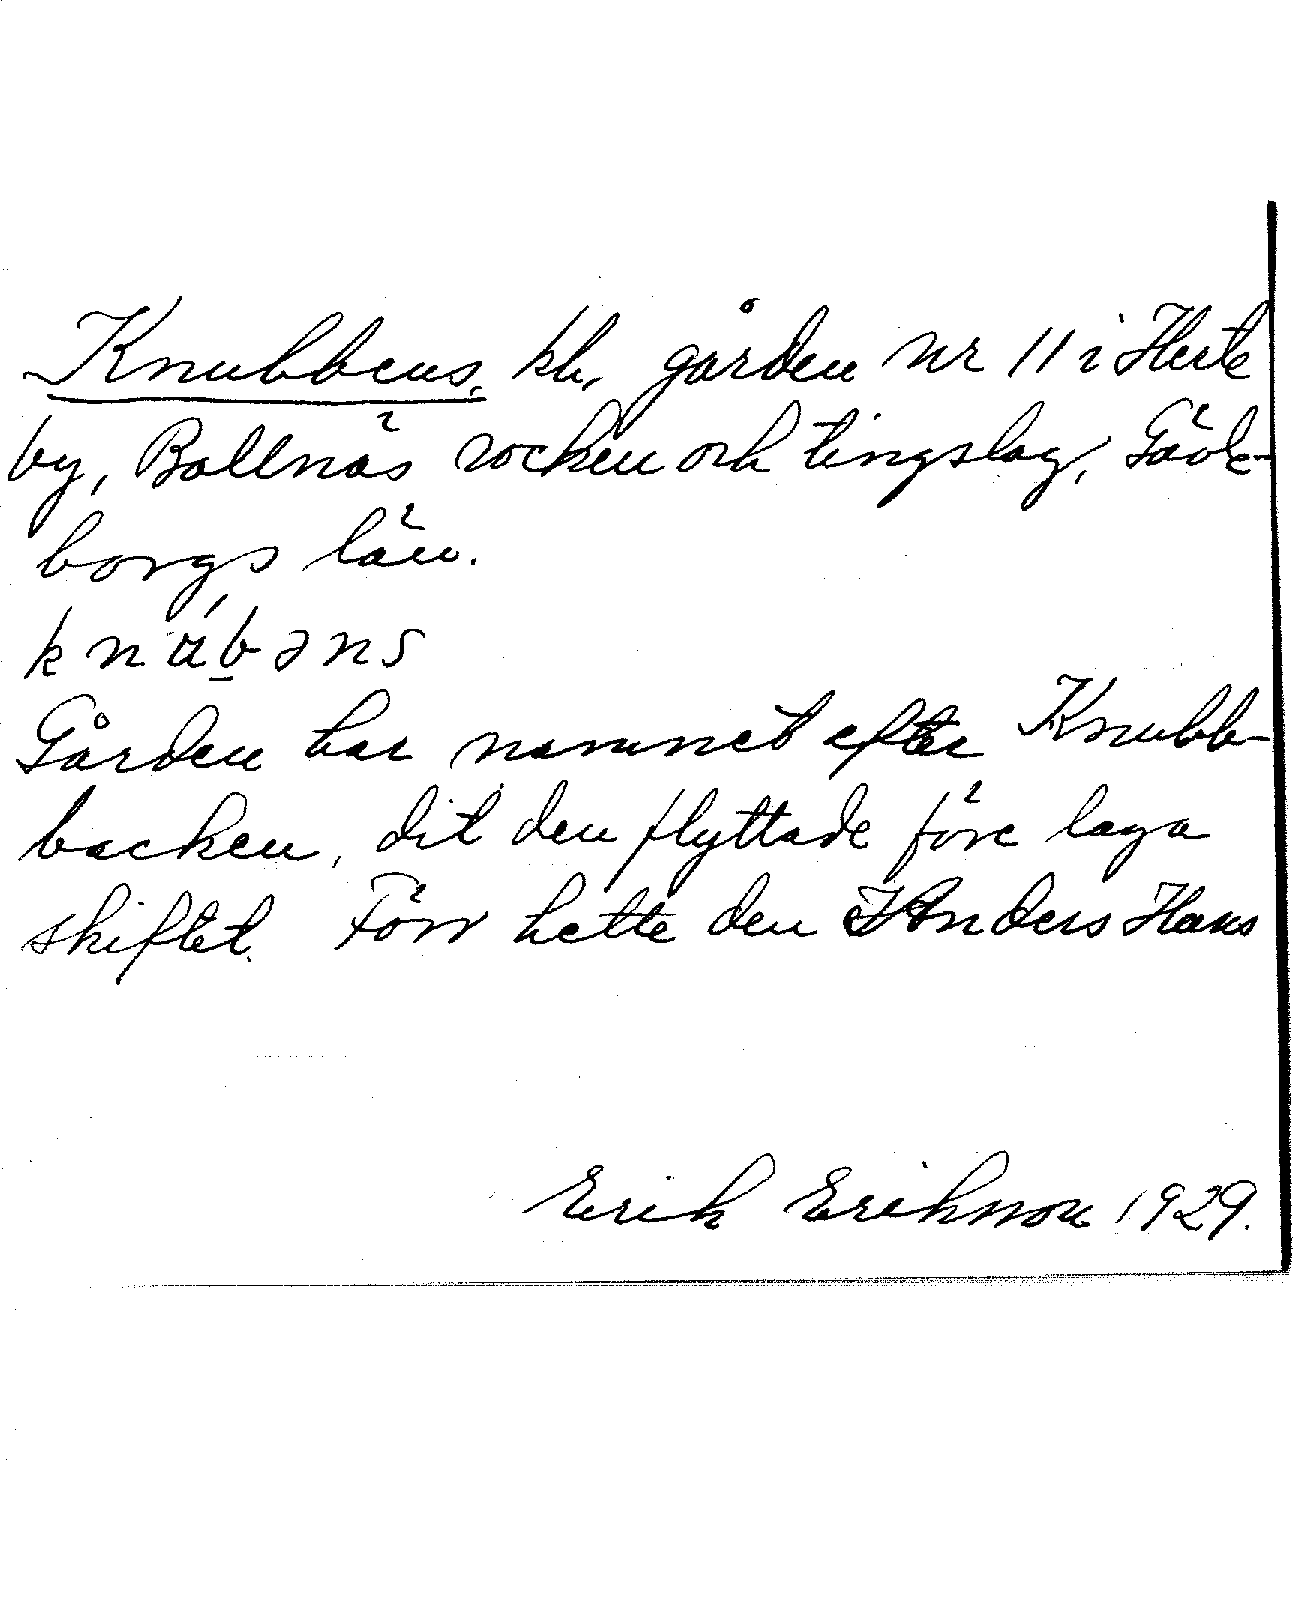 Knubbens, kb, gården nr 11 i Herte
by, Bollnäs socken och tingslag, Gävle-
borgs län.
knu̇́b̲əns
Gården har namnet efter Knubb-
backen, dit den flyttade före laga
skiftet. Förr hette den Anders Hans
Erik Erikson 1929.